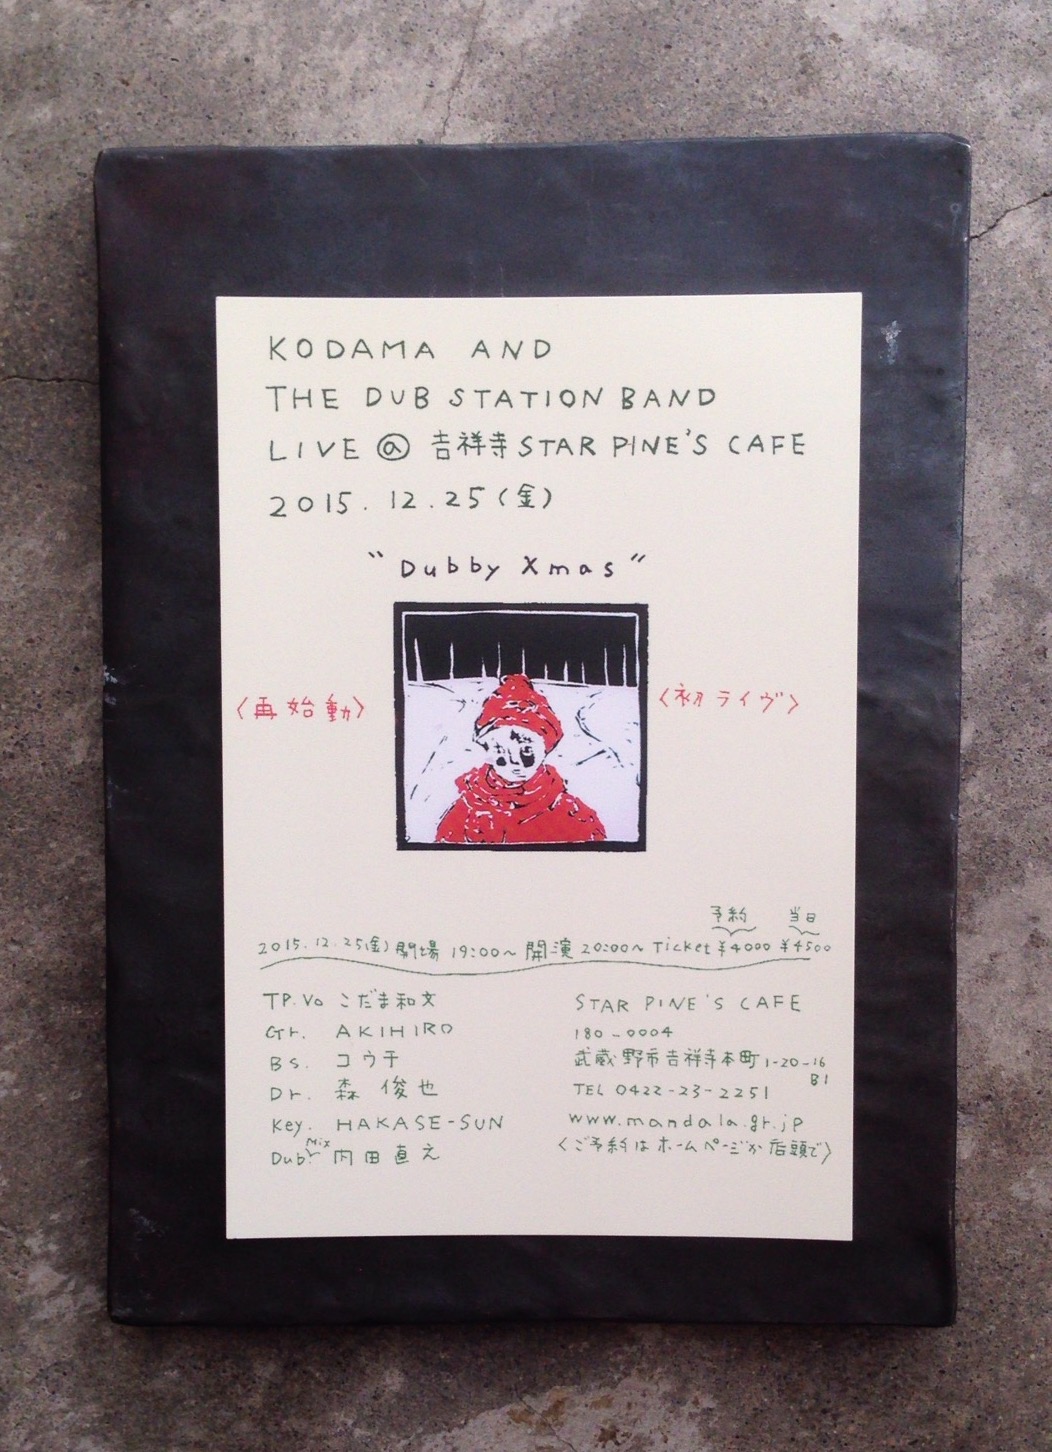 KODAMA AND
THE DUB STATION BAND
LIVE @ 吉祥寺 STAR PINE'S CAFE
2015. 12. 25 (金)
"Dubby Xmas"
〈再始動〉
〈初ライヴ〉
予約 当日
2015.12.25(金) 開場 19:00~ 開演 20:00~ Ticket ¥4000 ¥4500
TP. Vo こだま和文
Gr. AKIHIRO
Bs. コウチ
Dr. 森 俊也
Key. HAKASE-SUN
Dub Mix 内田直之
STAR PINE'S CAFE
180-0004
武蔵野市吉祥寺本町1-20-16
B1
TEL 0422-23-2251
www.mandala.gr.jp
〈ご予約はホームページか店頭で〉